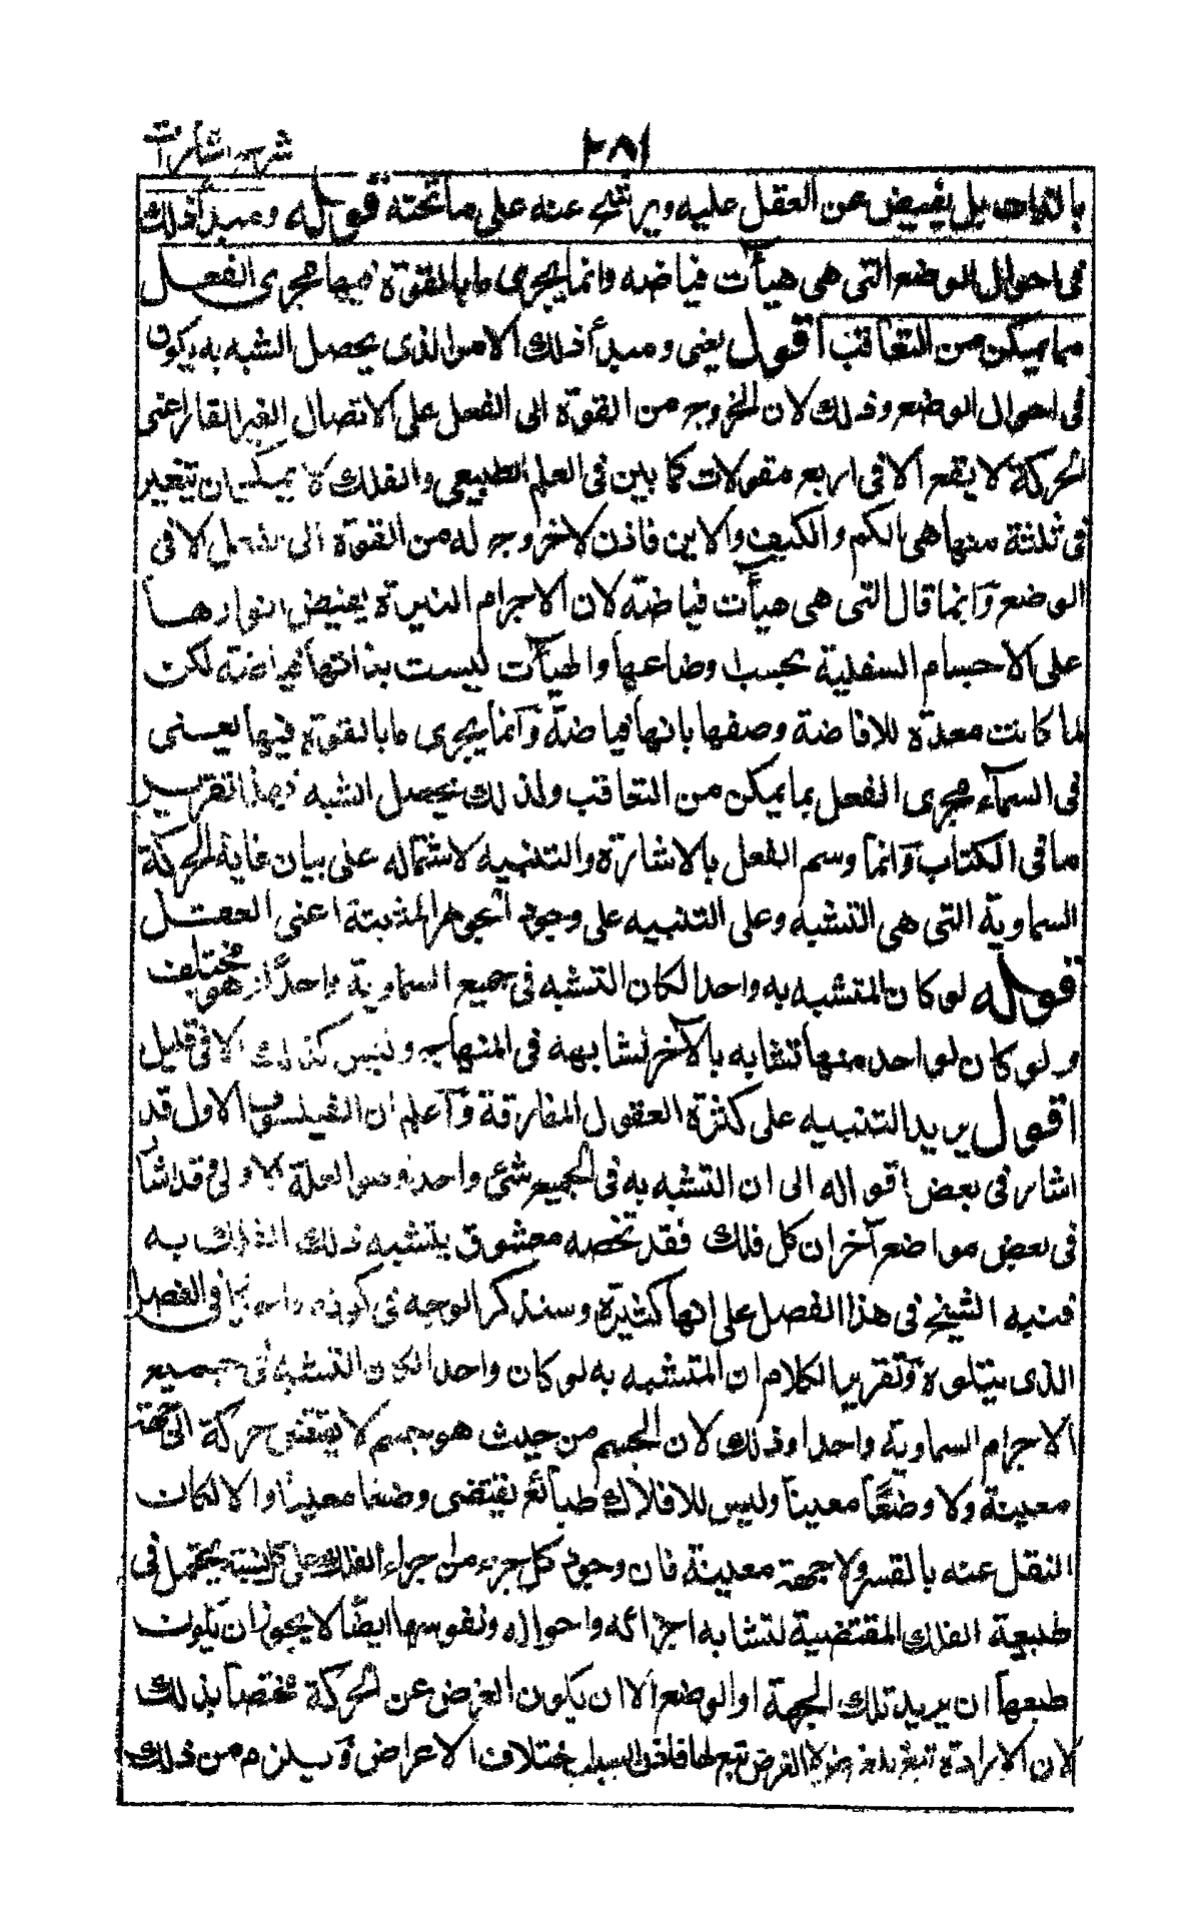 شرح اشارات
٢٨١
بالذات بل يفيض عن العقل عليه ويرشح عنه على ما تحته قوله ومبدأ ذلك
في احوال الوضع التي هي هيآت فياضه وانما يجرى ما بالقوة فيها مجرى الفعل
مما يمكن من التعاقب اقول يعنى ومبدأ ذلك الامر الذى يحصل الشبه به يكون
في احوال الوضع وذلك لان الخروج من القوة الى الفعل على الاتصال الغير القار اعنى
الحركة لا يقع الا فى اربع مقولات كما بين فى العلم الطبيعى والفلك لا يمكن ان يتغير
فى ثلثة منها هى الكم والكيف والاين فاذن لا خروج له من القوة الى الفعل الا فى
الوضع وانما قال التى هى هيآت فياضة لان الاجرام النيرة يفيض انوارها
على الاجسام السفلية بحسب اوضاعها والهيآت ليست بذاتها فياضة لكن
لما كانت معدة للافاضة وصفها بانها فياضة وانما يجرى ما بالقوة فيها يعنى
فى السماء مجرى الفعل بما يمكن من التعاقب ولذلك يحصل الشبه فهذا تقرير
ما فى الكتاب وانما وسم الفعل بالاشارة والتنبيه لاشتماله على بيان غاية الحركة
السماوية التى هى التشبه وعلى التنبيه على وجود الجوهر المتشبهة اعنى العقل
قوله لو كان المتشبه به واحدا لكان التشبه فى جميع السماوية واحدا وهو مختلف
ولو كان لواحد منها تشابه بالآخر لشابهه فى المنهاج وليس كذلك الا فى قليل
اقول يريد التنبيه على كثرة العقول المفارقة واعلم ان الفيلسوف الاول قد
اشار فى بعض اقواله الى ان التشبه به فى الجميع شئ واحد وهو العلة الاولى وقد اشار
فى بعض مواضع آخر ان كل فلك فقد تخصه معشوق يتشبه ذلك الفلك به
فنبه الشيخ فى هذا الفصل على انها كثيرة وسنذكر الوجه فى كونه واحدا فى الفصل
الذى يتلوه وتقرير الكلام ان المتشبه به لو كان واحدا لكان التشبه فى جميع
الاجرام السماوية واحدا وذلك لان الجسم من حيث هو جسم لا يقتضى حركة الى جهة
معينة ولا وضعا معينا وليس للافلاك طبائع يقتضى وضعا معينا والا لكان
النقل عنه بالقسر ولا جهة معينة فان وجود كل جزء من اجزاء الفلك على كل نسبة يحتمل فى
طبيعة الفلك المقتضية لتشابه اجزائه واحواله ونفوسها ايضا لا يجوز ان يكون
طبعها ان يريد تلك الجهة او الوضع الا ان يكون الغرض عن الحركة مختصا بذلك
لان الارادة تبع للغرض لا الغرض تبع لها فاذن السبب اختلاف الاغراض ويلزم من ذلك